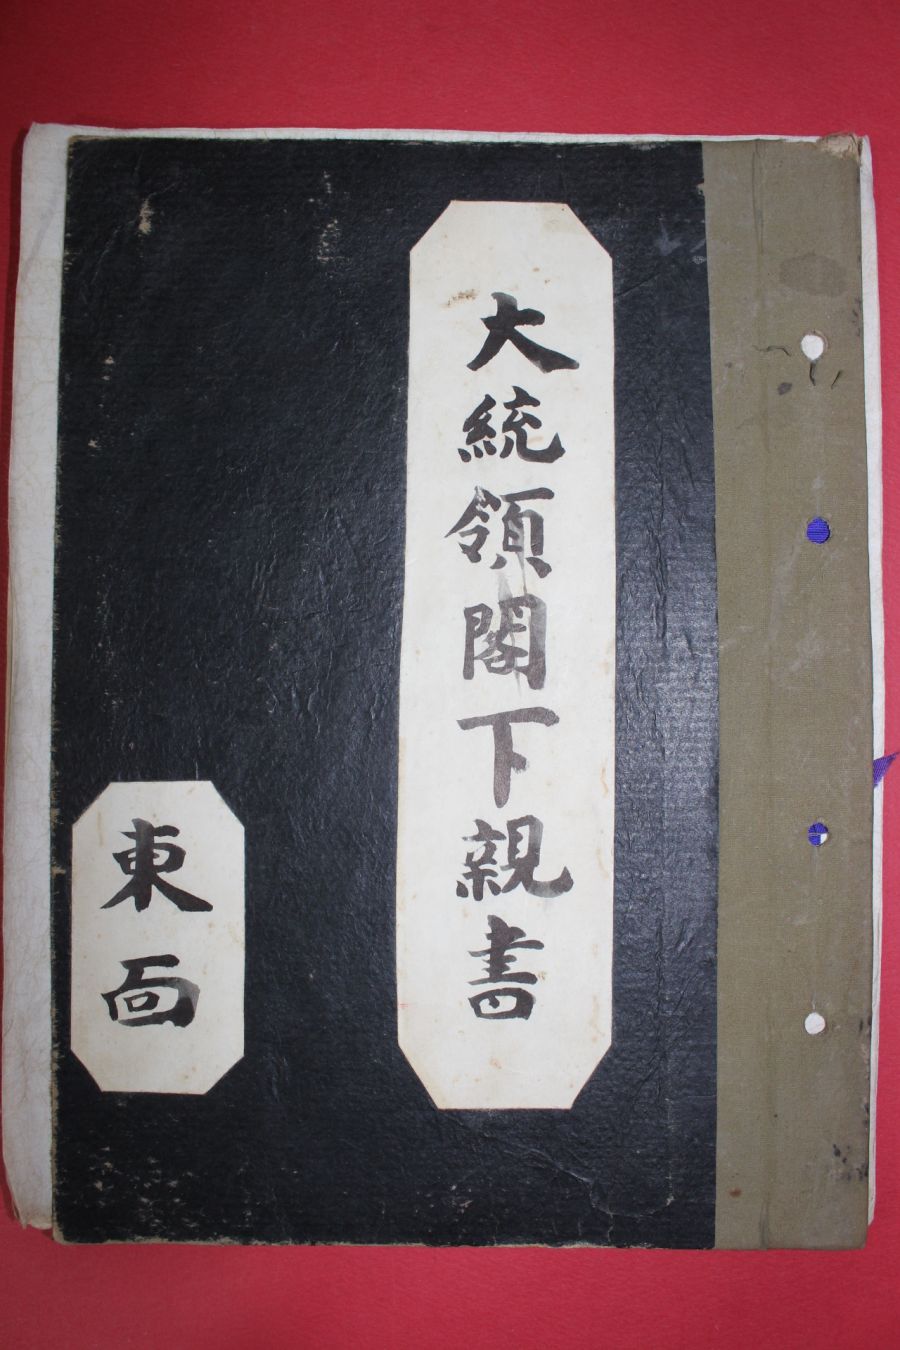 大統領閣下親書
東面